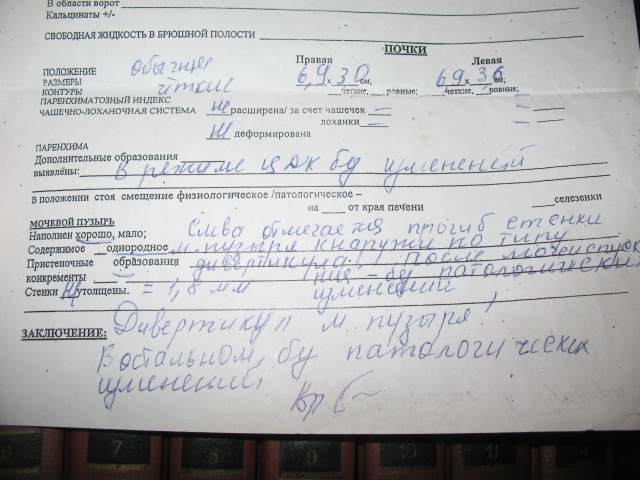 В области ворот
Кальцинаты +/-
СВОБОДНАЯ ЖИДКОСТЬ В БРЮШНОЙ ПОЛОСТИ
ПОЧКИ
Правая Левая
ПОЛОЖЕНИЕ обычные
РАЗМЕРЫ 6,9 x 3,0 см; 6,9 x 3,6 см;
КОНТУРЫ чёткие четкие, ровные; четкие, ровные;
ПАРЕНХИМАТОЗНЫЙ ИНДЕКС
ЧАШЕЧНО-ЛОХАНОЧНАЯ СИСТЕМА не расширена/ за счет чашечек –
лоханки –
не деформирована
ПАРЕНХИМА
Дополнительные образования
выявлены: В режиме ЦДК бу изменений
В положении стоя смещение физиологическое /патологическое –
на от края печени селезенки
МОЧЕВОЙ ПУЗЫРЬ
Наполнен хорошо, мало; Слева отмечается прогиб стенки
Содержимое однородное м. пузыря кнаружи по типу
Пристеночные образования дивертикула. После мочеиспуск
конкременты – ния – бу патологических
Стенки не утолщены. = 1,8 мм изменений
ЗАКЛЮЧЕНИЕ: Дивертикул м. пузыря!
В остальном, бу патологических
изменений
Вр
6 7 8 9 10 11